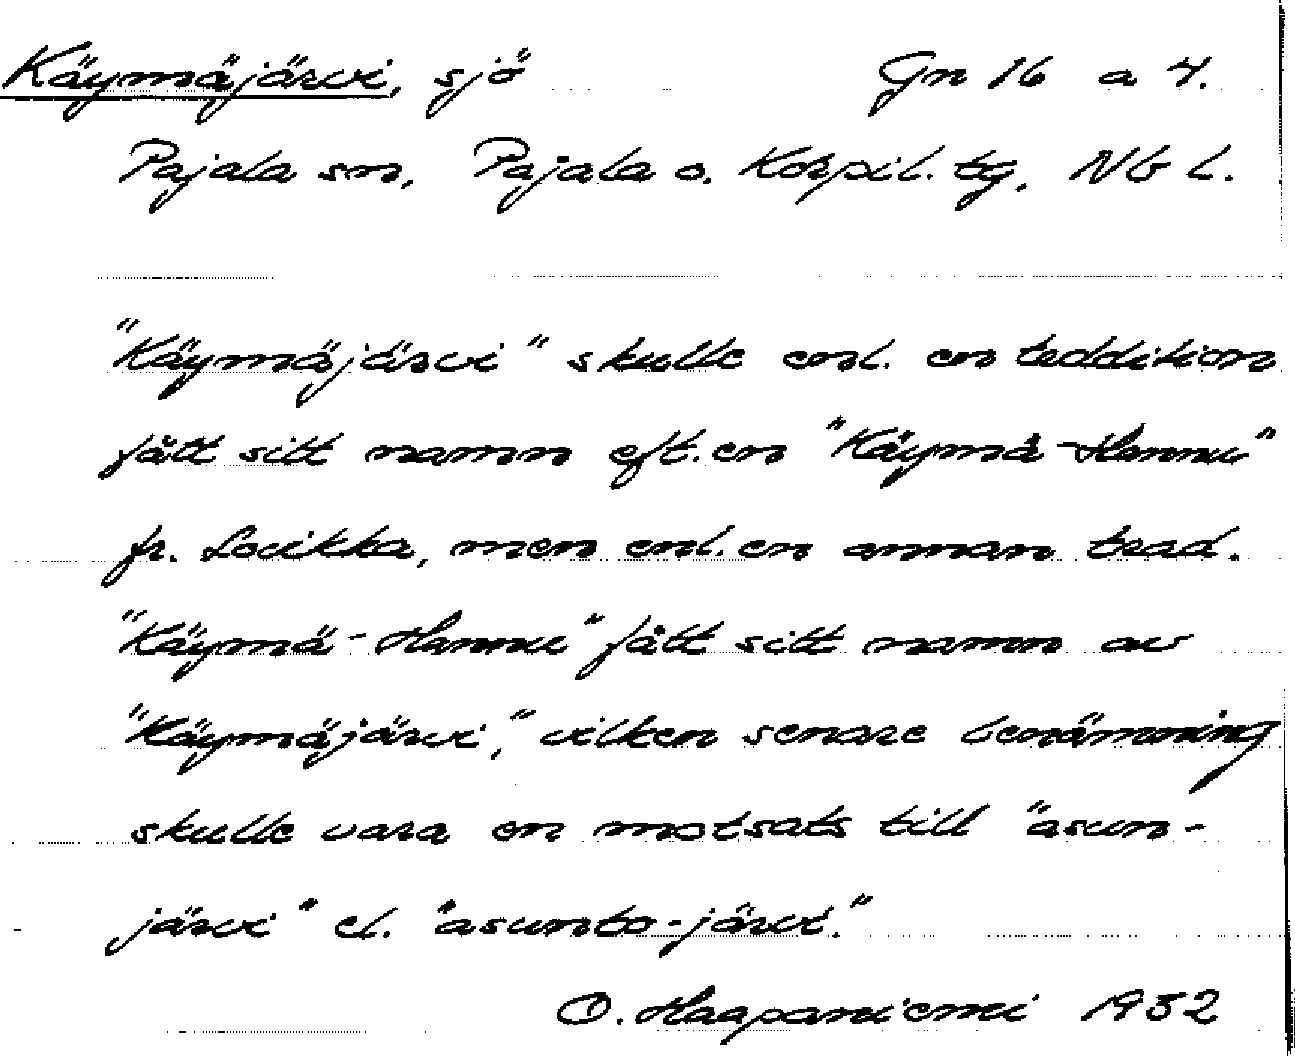 Käymäjärvi, sjö Gn 16 a 4.
Pajala sn, Pajala o. Korpil. tg, Nb l.
"Käymäjärvi" skulle enl. en teddition
fått sitt namn eft. en "Käymä-Hannu"
fr. Lovikka, men enl. en annan trad.
"Käymä-Hannu" fått sitt namn av
"Käymäjärvi", vilken senare benämning
skulle vara en motsats till "asun-
järvi" el. "asunto-järvi."
O. Haapaniemi 1932